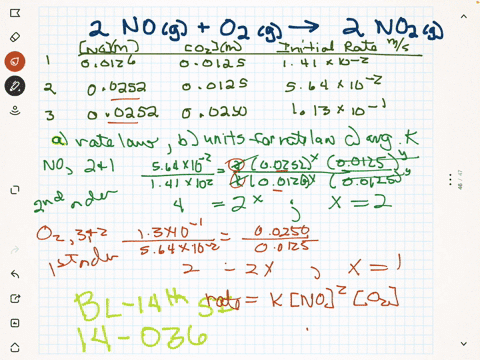 2 NO(g) + O₂(g) → 2 NO₂(g)
[NO](M) [O₂](M) Initial Rate M/s
1 0.0126 0.0125 1.41 × 10⁻²
2 0.0252 0.0125 5.64 × 10⁻²
3 0.0252 0.0250 1.13 × 10⁻¹
a) rate law, b) units for rate law c) avg. K
NO, 2&1 5.64 × 10⁻² / 1.41 × 10⁻² = k (0.0252)ˣ (0.0125)ʸ / k (0.0126)ˣ (0.0125)ʸ
2nd order 4 = 2ˣ ; x = 2
O₂, 3&2 1.3 × 10⁻¹ / 5.64 × 10⁻² = 0.0250 / 0.0125
1st order 2 = 2x ; x = 1
BL-14th
rate = K [NO]² [O₂]
14-036